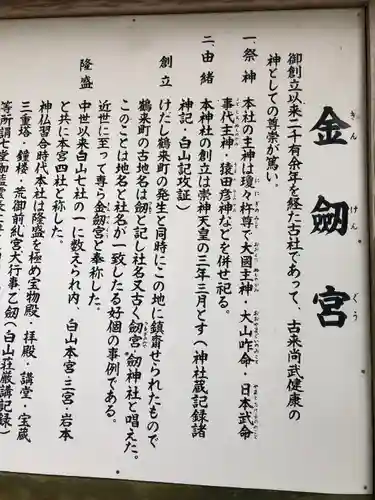 金劔宮
きんけんぐう
御創立以来二千有余年を経た古社であって、古来尚武健康の
神としての尊崇が篤い
一、祭神　本社の主神は瓊々杵尊で大國主神・大山咋命・日本武命
事代主神・猿田彦神などを併せ祀る。
二、由緒　本神社の創立は崇神天皇の三年三月とす（神社蔵記録諸
神記・白山記攷証）
創立　けだし鶴来町の発生と同時にこの地に鎮齋せられたもので
鶴来町の古地名は劔と記し社名又古く劔宮・劔神社と唱えた。
このことは地名と社名が一致したる好個の事例である。
近世に至って専ら金劔宮と奉称した。
隆盛　中世以来白山七社の一に数えられ内、白山本宮・三宮・岩本
と共に本宮四社と称した。
神仏習合時代本社は隆盛を極め宝物殿・拝殿・講堂・宝蔵
三重塔・鐘楼・荒御前糺宮大行事乙劔（白山荘厳講記録）
等所謂七堂伽藍